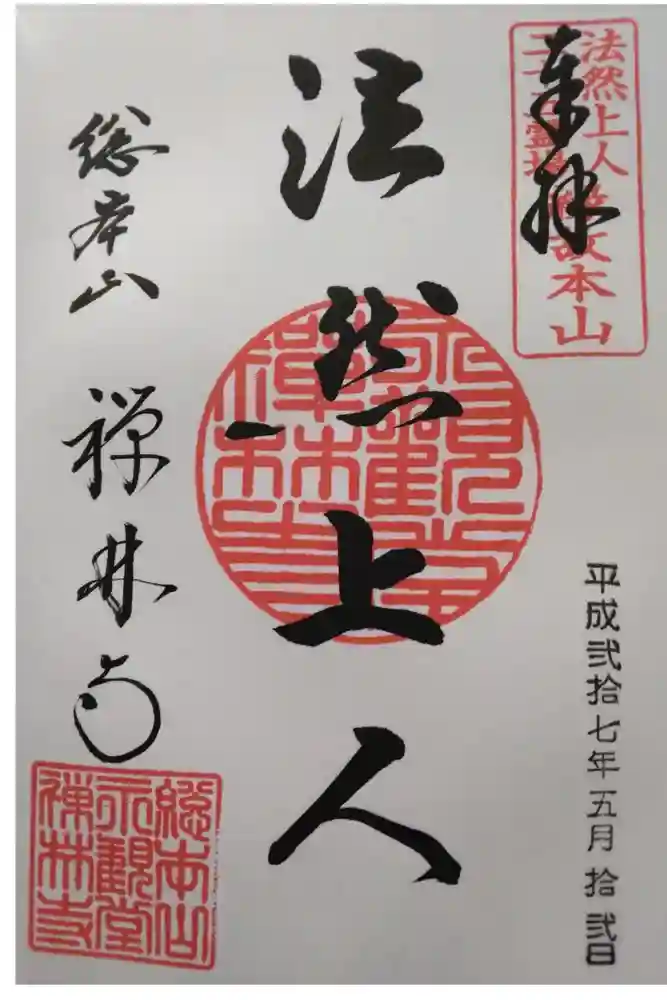 奉拝
法然上人縁故本山
二十五霊場
平成弐拾七年五月拾弐日
法然上人
永観堂
禅林寺
総本山 禅林寺
総本山
永観堂
禅林寺